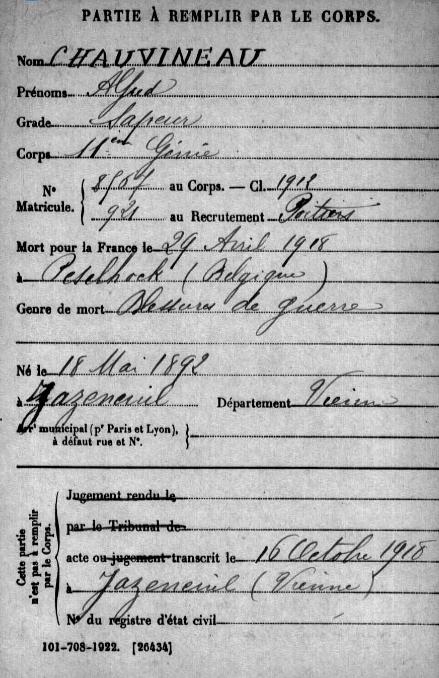 PARTIE À REMPLIR PAR LE CORPS.
Nom CHAUVINEAU
Prénoms Alfred
Grade Sapeur
Corps 11e Génie
N° Matricule. { au Corps. — Cl. 1912
921 au Recrutement Poitiers
Mort pour la France le 29 Avril 1918
à Peselhock (Belgique)
Genre de mort Blessures de guerre
Né le 18 Mai 1892
à Jazeneuil Département Vienne
Arrt municipal (pr Paris et Lyon),
à défaut rue et N°. }
Cette partie n'est pas à remplir par le Corps.
Jugement rendu le
par le Tribunal de
acte ou jugement transcrit le 16 Octobre 1918
à Jazeneuil (Vienne)
N° du registre d'état civil
101-708-1922. [26434]